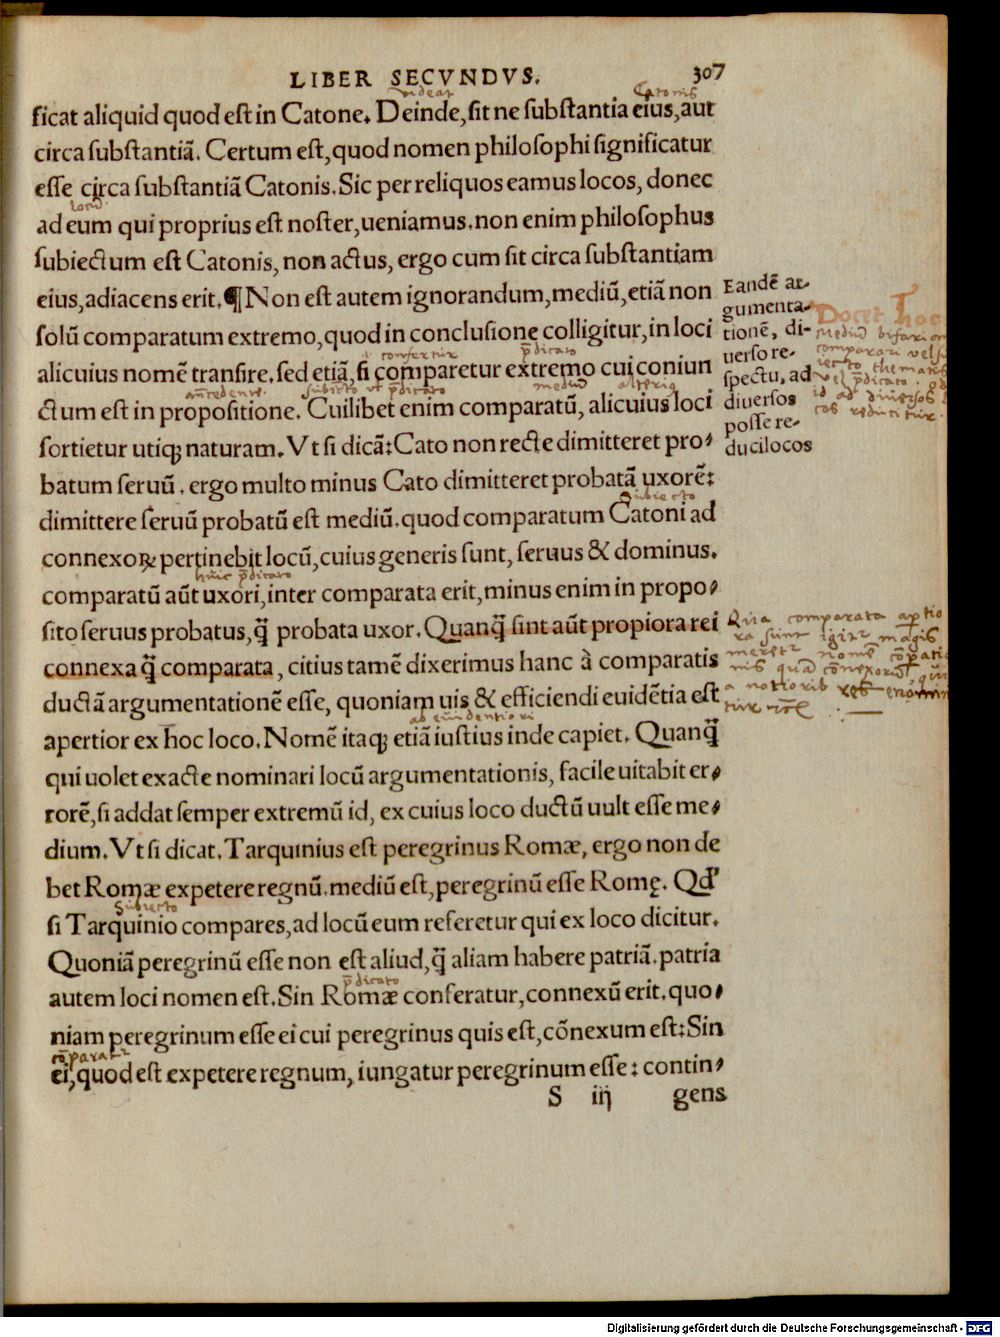 LIBER SECVNDVS. 307
videat Catonis
ficat aliquid quod est in Catone. Deinde, sit ne substantia eius, aut
circa substantiã. Certum est, quod nomen philosophi significatur
esse circa substantiã Catonis. Sic per reliquos eamus locos, donec
locũ
ad eum qui proprius est noster, ueniamus. non enim philosophus
subiectum est Catonis, non actus, ergo cum sit circa substantiam
eius, adiacens erit. ¶ Non est autem ignorandum, mediũ, etiã non
solũ comparatum extremo, quod in conclusione colligitur, in loci
i confertur p̃dicato
alicuius nomẽ transire. sed etiã, si comparetur extremo cui coniun
subiecto vt p̃dicato mediũ
ctum est in propositione. Cuilibet enim comparatũ, alicuius loci
sortietur utiqꝫ naturam. Vt si dicã: Cato non recte dimitteret pro-
batum seruũ. ergo multo minus Cato dimitteret probatã uxorẽ:
subiecto
dimittere seruũ probatũ est mediũ. quod comparatum Catoni ad
connexoꝝ pertinebit locũ, cuius generis sunt, seruus & dominus.
huic p̃dicato
comparatũ aũt uxori, inter comparata erit, minus enim in propo-
sito seruus probatus, q̃ probata uxor. Quanq̃ sint aũt propiora rei
connexa q̃ comparata, citius tamẽ dixerimus hanc à comparatis
ductã argumentationẽ esse, quoniam uis & efficiendi euidẽtia est
ab euidentiori
apertior ex hoc loco. Nomẽ itaqꝫ etiã iustius inde capiet. Quanq̃
qui uolet exacte nominari locũ argumentationis, facile uitabit er-
rorẽ, si addat semper extremũ id, ex cuius loco ductũ uult esse me-
dium. Vt si dicat. Tarquinius est peregrinus Romæ, ergo non de
bet Romæ expetere regnũ. mediũ est, peregrinũ esse Romę. Qd'
Subiecto
si Tarquinio compares, ad locũ eum referetur qui ex loco dicitur.
Quoniã peregrinũ esse non est aliud, q̃ aliam habere patriã. patria
p̃dicato
autem loci nomen est. Sin Romæ conferatur, connexũ erit. quo-
niam peregrinum esse ei cui peregrinus quis est, cõnexum est: Sin
cõparatʳ
ei, quod est expetere regnum, iungatur peregrinum esse: contin-
S iij gens
Eandẽ ar-
gumenta-
tionẽ, di-
uerso re-
spectu, ad
diuersos
posse re-
duci locos
Docet hoc
Mediũ bifariam
comparari vel
vel p̃dicato.
id ad diuersos
cos reducitur.
Quia comparata aptio
ra sunt igitʳ magis
meretʳ nomẽ cõpatio
nis quã cõnexorũ
a notiorib